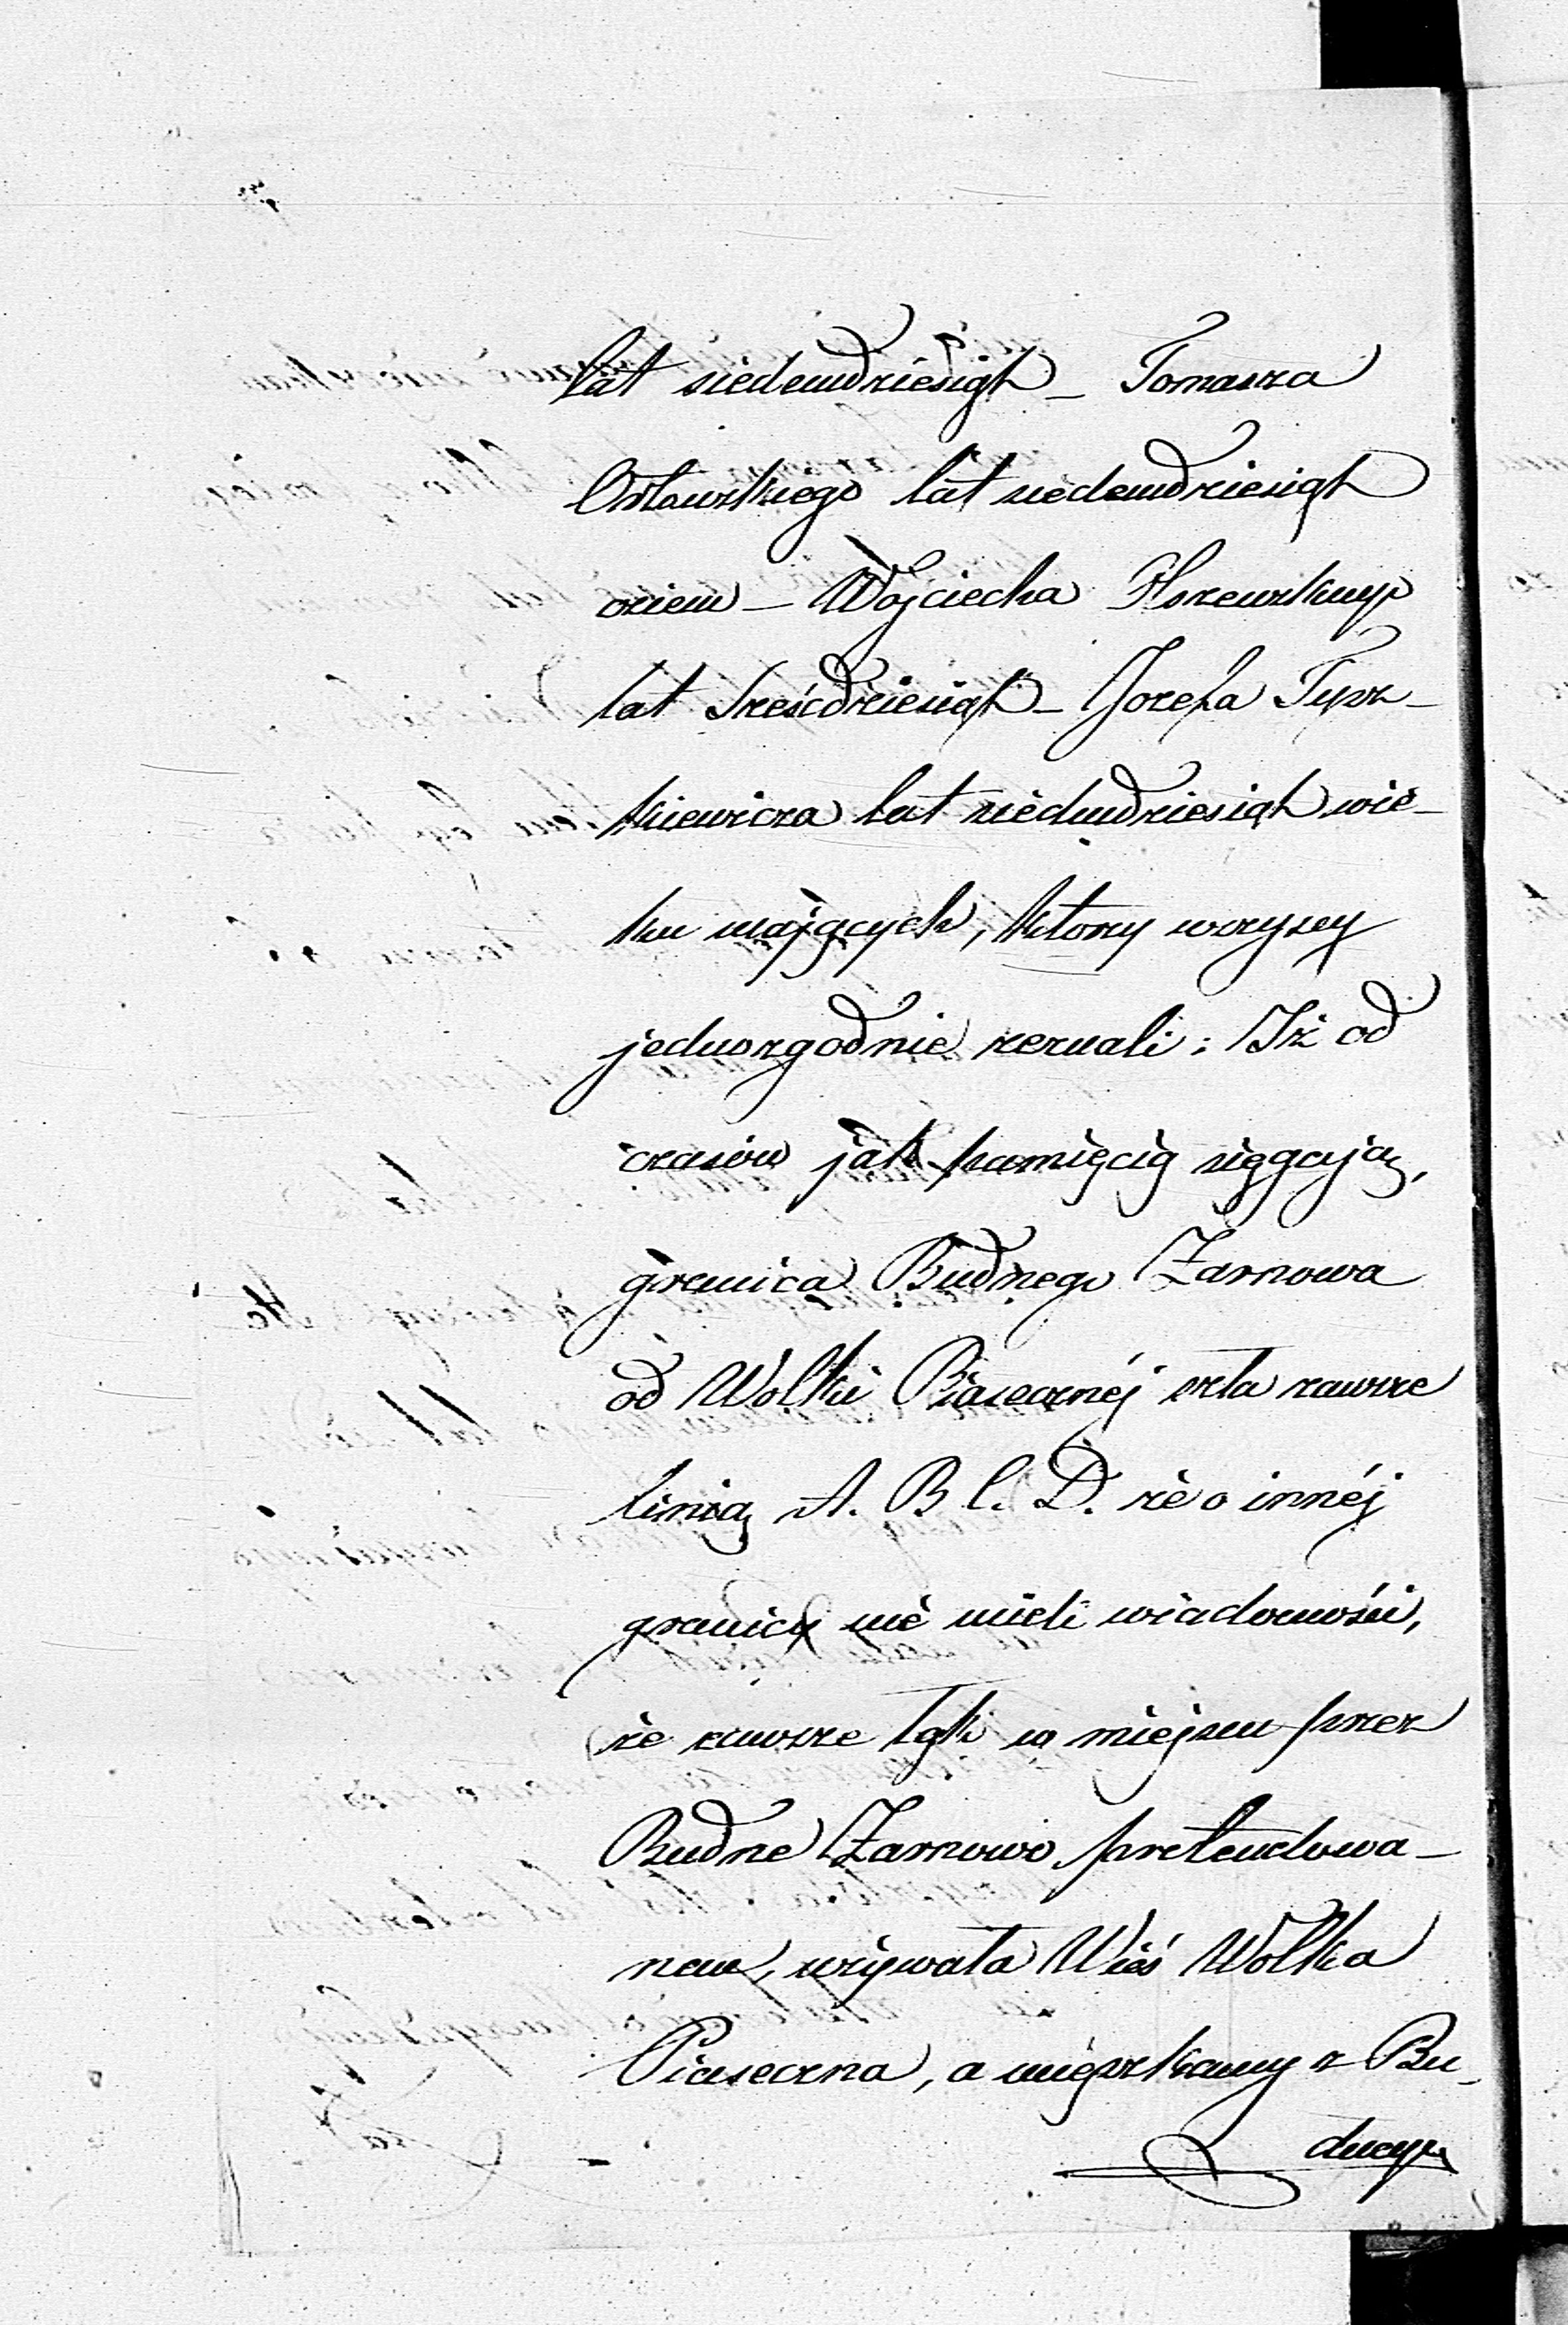 lat siedemdziesiąt – Tomasza
Osławskiego lat siedemdziesiąt
ośiem – Wojciecha
lat sześćdziesiąt – Jozefa Tysz-
kiewicza lat siedmdziesiąt wie-
ku mających, ktorzy wszyscy
jednozgodnie zeznali: Iż od
czasów jak pamięcią sięgają,
granica Budnego Żarnowa
od Wolki Piasecznéj szła zawsze
linią A. B C. D. że o innéj
granicy nie mieli wiadomości,
że zawsze łąki w miejscu przez
Budne Żarnowo pretendowa-
nem, używała Wieś Wolka
Piaseczna, a mięszkańcy z Bu-